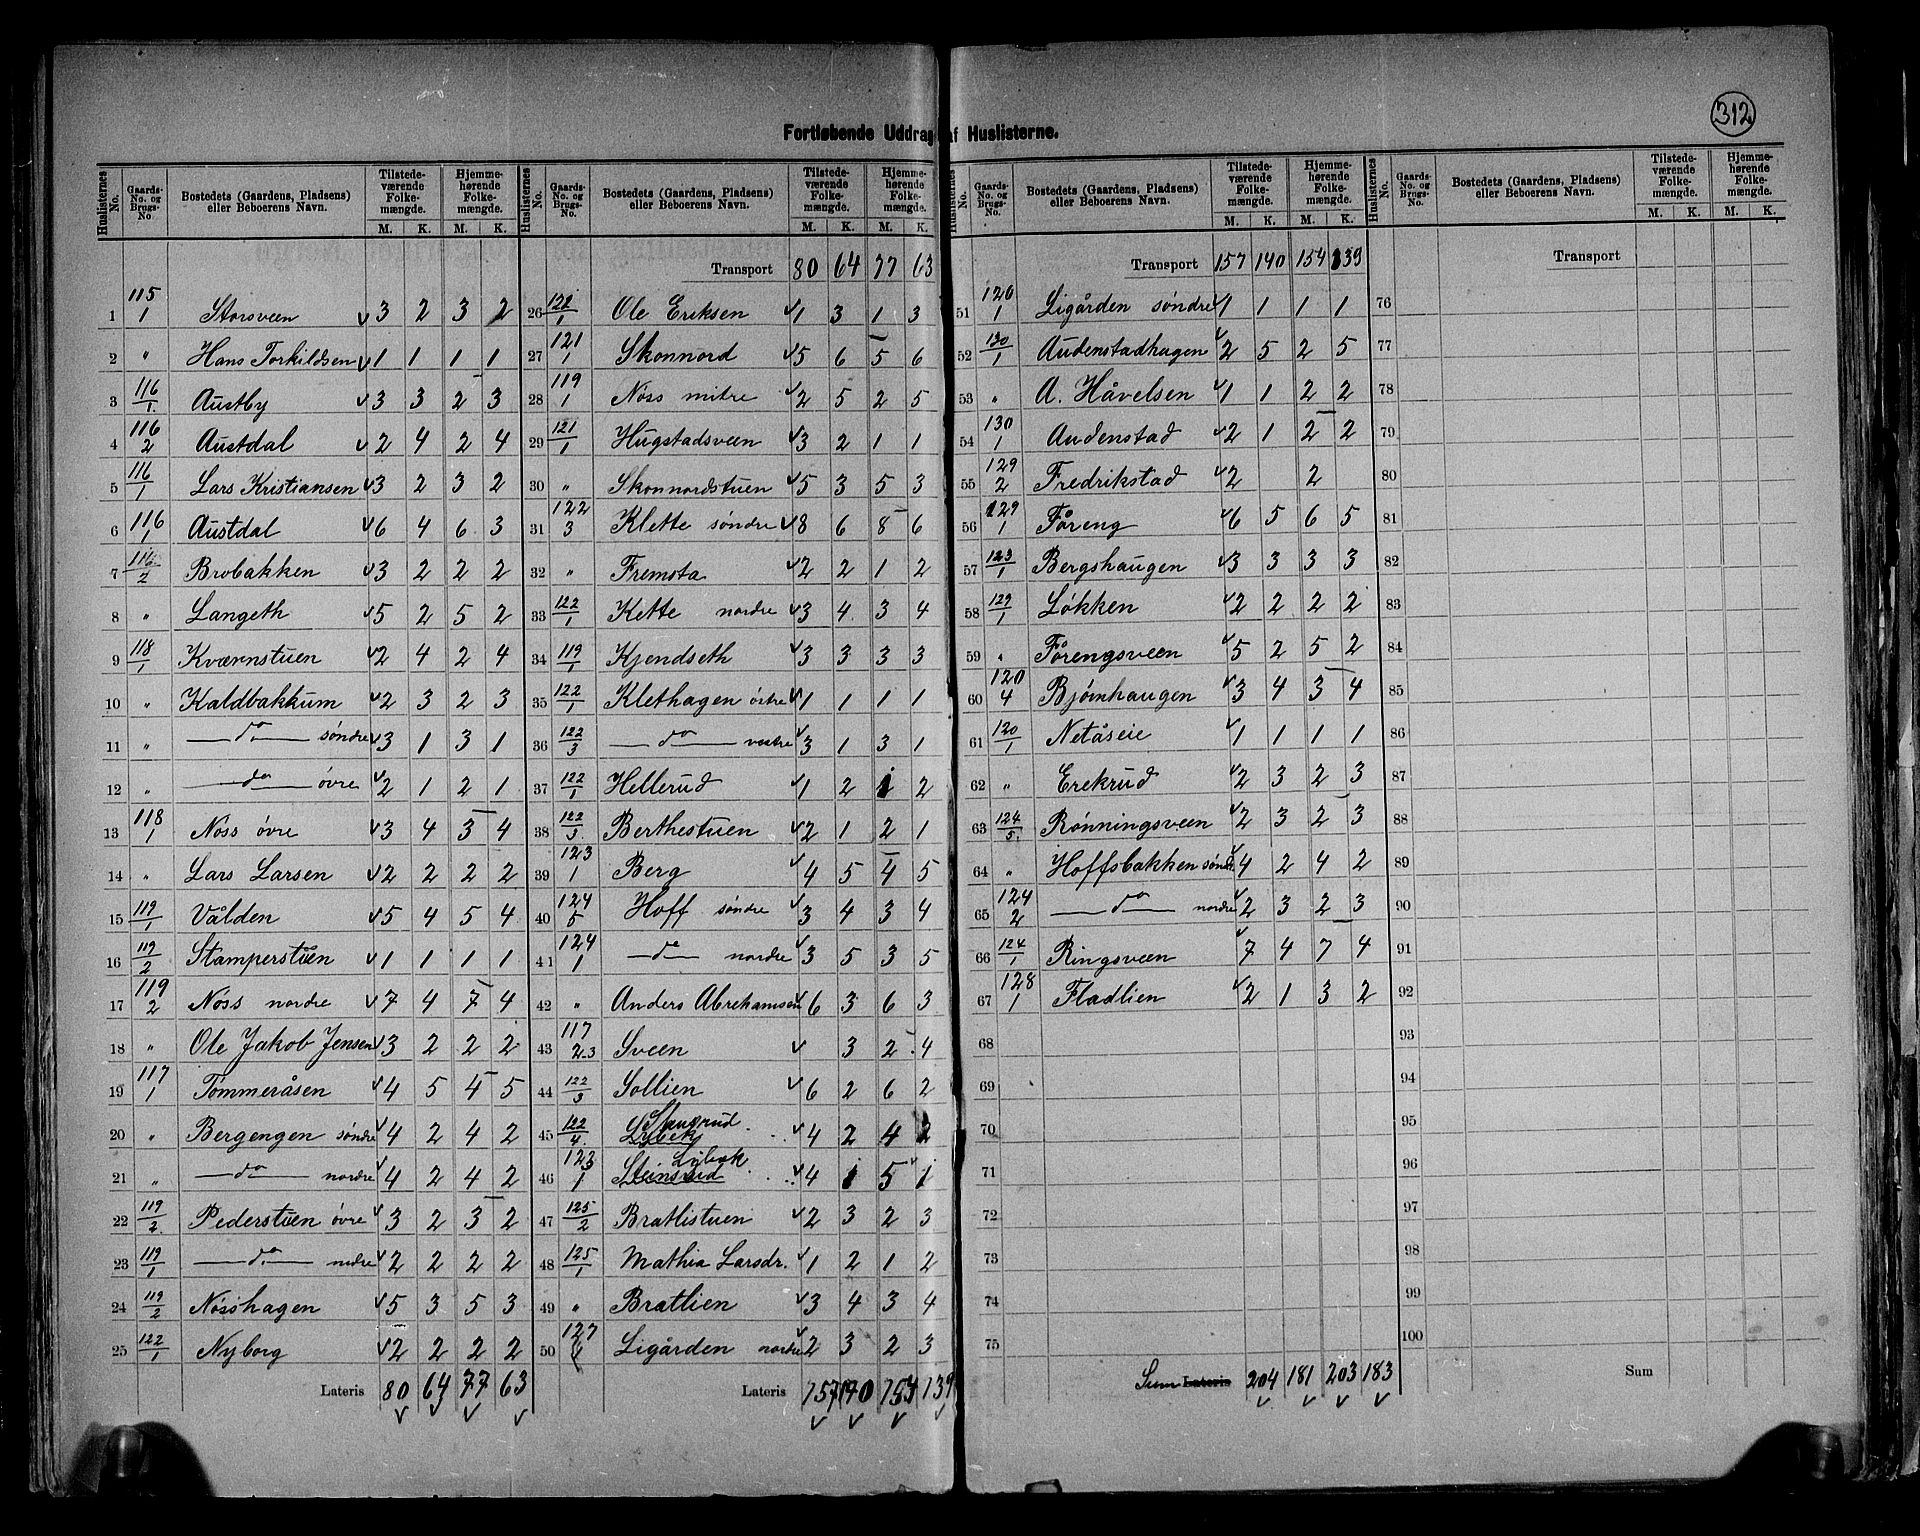 312
Fortløbende Uddrag af Huslisterne.
Huslisternes No. | Gaards-No. og Brugs-No. | Bostedets (Gaardens, Pladsens) eller Beboerens Navn. | Tilstedeværende Folkemængde. M. K. | Hjemmehørende Folkemængde. M. K.
1 | 115/1 | Storsveen | 3 | 2 | 3 | 2
2 | " | Hans Torkildsen | 1 | 1 | 1 | 1
3 | 116/1. | Austby | 3 | 3 | 2 | 3
4 | 116/2 | Austdal | 2 | 4 | 2 | 4
5 | 116/1 | Lars Kristiansen | 3 | 2 | 3 | 2
6 | 116/1 | Austdal | 6 | 4 | 6 | 3
7 | 116/2 | Brobakken | 3 | 2 | 2 | 2
8 | " | Langeth | 5 | 2 | 5 | 2
9 | 118/1 | Kværnstuen | 2 | 4 | 2 | 4
10 | " | Kaldbakkum | 2 | 3 | 2 | 3
11 | " | — do — søndre | 3 | 1 | 3 | 1
12 | " | — do — øvre | 2 | 1 | 2 | 1
13 | 118/1 | Noss øvre | 3 | 4 | 3 | 4
14 | " | Lars Larsen | 2 | 2 | 2 | 2
15 | 119/1 | Vålden | 5 | 4 | 5 | 4
16 | 119/2 | Stamperstuen | 1 | 1 | 1 | 1
17 | 119/2 | Noss nordre | 7 | 4 | 7 | 4
18 | " | Ole Jakob Jensen | 3 | 2 | 2 | 2
19 | 117/1 | Tømmeråsen | 4 | 5 | 4 | 5
20 | " | Bergengen søndre | 4 | 2 | 4 | 2
21 | " | — do — nordre | 4 | 2 | 4 | 2
22 | 119/2. | Pederstuen øvre | 3 | 2 | 3 | 2
23 | 119/1 | — do — nedre | 2 | 2 | 2 | 2
24 | 119/2 | Nosshagen | 5 | 3 | 5 | 3
25 | 122/1 | Nyborg | 2 | 2 | 2 | 2
Lateris | 80 | 64 | 77 | 63
Huslisternes No. | Gaards-No. og Brugs-No. | Bostedets (Gaardens, Pladsens) eller Beboerens Navn. | Tilstedeværende Folkemængde. M. K. | Hjemmehørende Folkemængde. M. K.
Transport | 80 | 64 | 77 | 63
26 | 122/1 | Ole Eriksen | 1 | 3 | 1 | 3
27 | 121/1 | Skonnord | 5 | 6 | 5 | 6
28 | 119/1 | Noss mitre | 2 | 5 | 2 | 5
29 | 121/1 | Hugstadsveen | 3 | 2 | 1 | 1
30 | " | Skonnordstuen | 5 | 3 | 5 | 3
31 | 122/3 | Klette søndre | 8 | 6 | 8 | 6
32 | " | Fremsta | 2 | 2 | 1 | 2
33 | 122/1 | Kette nordre | 3 | 4 | 3 | 4
34 | 119/1 | Kjendseth | 3 | 3 | 3 | 3
35 | 122/1 | Klethagen östre | 1 | 1 | 1 | 1
36 | 122/3 | — do — vestre | 3 | 1 | 3 | 1
37 | 122/1 | Hellerud | 1 | 2 | 1 | 2
38 | 122/3. | Berthestuen | 2 | 1 | 2 | 1
39 | 123/1 | Berg | 4 | 5 | 4 | 5
40 | 124/5 | Hoff søndre | 3 | 4 | 3 | 4
41 | 124/1 | — do — nordre | 3 | 5 | 3 | 5
42 | " | Anders Abrehamsen | 6 | 3 | 6 | 3
43 | 117/2.3 | Sveen | | 3 | 2 | 4
44 | 122/3 | Sollien | 6 | 2 | 6 | 2
45 | 122/4. | Lybek | 4 | 2 | 4 | 2
46 | 123/1 | Steinsrud Lybæk | 4 | 1 | 5 | 1
47 | 125/2 | Bratlistuen | 2 | 3 | 2 | 3
48 | 125/1 | Mathia Larsdr. | 1 | 2 | 1 | 2
49 | " | Bratlien | 3 | 4 | 3 | 4
50 | 127 | Ligården nordre | 2 | 3 | 2 | 3
Lateris | 157 | 140 | 154 | 139
Huslisternes No. | Gaards-No. og Brugs-No. | Bostedets (Gaardens, Pladsens) eller Beboerens Navn. | Tilstedeværende Folkemængde. M. K. | Hjemmehørende Folkemængde. M. K.
Transport | 157 | 140 | 154 | 139
51 | 126/1 | Ligården søndre | 1 | 1 | 1 | 1
52 | 130/1 | Audenstadhagen | 2 | 5 | 2 | 5
53 | " | A. Håvelsen | 1 | 1 | 2 | 2
54 | 130/1 | Audenstad | 2 | 1 | 2 | 2
55 | 129/2 | Fredrikstad | 2 | | 2 |
56 | 129/1 | Føreng | 6 | 5 | 6 | 5
57 | 123/1 | Bergshaugen | 3 | 3 | 3 | 3
58 | 129/1 | Løkken | 2 | 2 | 2 | 2
59 | " | Førengsveen | 5 | 2 | 5 | 2
60 | 120/4 | Bjørnhaugen | 3 | 4 | 3 | 4
61 | 120/1 | Netåseie | 1 | 1 | 1 | 1
62 | " | Erekrud | 2 | 3 | 2 | 3
63 | 124/5. | Rønningsveen | 2 | 3 | 2 | 3
64 | " | Hoffsbakken søndr | 4 | 2 | 4 | 2
65 | 124/2 | — do — nordre | 2 | 3 | 2 | 3
66 | 124/1 | Ringsveen | 7 | 4 | 7 | 4
67 | 128/1 | Fladlien | 2 | 1 | 3 | 2
68
69
70
71
72
73
74
75
Sum Lateris | 204 | 181 | 203 | 183
Huslisternes No. | Gaards-No. og Brugs-No. | Bostedets (Gaardens, Pladsens) eller Beboerens Navn. | Tilstedeværende Folkemængde. M. K. | Hjemmehørende Folkemængde. M. K.
Transport
76
77
78
79
80
81
82
83
84
85
86
87
88
89
90
91
92
93
94
95
96
97
98
99
100
Sum